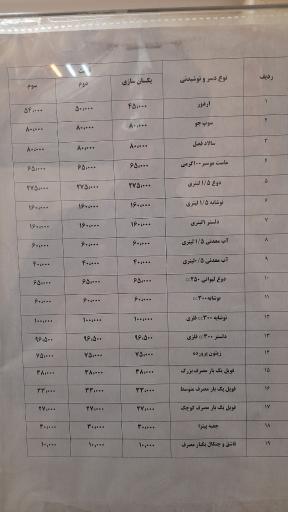 ردیف نوع دسر و نوشیدنی یکسان سازی دوم سوم
۱ اردور ۴۵،۰۰۰ ۵۰،۰۰۰ ۵۴،۰۰۰
۲ سوپ جو ۸۰،۰۰۰ ۸۰،۰۰۰ ۸۰،۰۰۰
۳ سالاد فصل ۸۰،۰۰۰ ۸۰،۰۰۰ ۸۰،۰۰۰
۴ ماست موسیر ۱۰۰گرمی ۶۵،۰۰۰ ۶۵،۰۰۰ ۶۵،۰۰۰
۵ دوغ ۱/۵ لیتری ۲۷۵،۰۰۰ ۲۷۵،۰۰۰ ۲۷۵،۰۰۰
۶ نوشابه ۱/۵ لیتری ۱۶۰،۰۰۰ ۱۶۰،۰۰۰ ۱۶۰،۰۰۰
۷ دلستر ۱لیتری ۱۶۰،۰۰۰ ۱۶۰،۰۰۰ ۱۶۰،۰۰۰
۸ آب معدنی ۱/۵ لیتری ۶۰،۰۰۰ ۶۰،۰۰۰ ۶۰،۰۰۰
۹ آب معدنی ۰/۵لیتری ۴۰،۰۰۰ ۴۰،۰۰۰ ۴۰،۰۰۰
۱۰ دوغ لیوانی ۲۵۰cc ۶۵،۰۰۰ ۶۵،۰۰۰ ۶۵،۰۰۰
۱۱ نوشابه۳۰۰cc ۶۰،۰۰۰ ۶۰،۰۰۰ ۶۰،۰۰۰
۱۲ نوشابه ۳۰۰cc فلزی ۱۰۰،۰۰۰ ۱۰۰،۰۰۰ ۱۰۰،۰۰۰
۱۳ دلستر ۳۰۰cc فلزی ۹۶،۵۰۰ ۹۶،۵۰۰ ۹۶،۵۰۰
۱۴ زیتون پرورده ۷۵،۰۰۰ ۷۵،۰۰۰ ۷۵،۰۰۰
۱۵ فویل یک بار مصرف بزرگ ۳۸،۰۰۰ ۳۸،۰۰۰ ۳۸،۰۰۰
۱۶ فویل یک بار مصرف متوسط ۳۳،۰۰۰ ۳۳،۰۰۰ ۳۳،۰۰۰
۱۷ فویل یک بار مصرف کوچک ۲۷،۰۰۰ ۲۷،۰۰۰ ۲۷،۰۰۰
۱۸ جعبه پیتزا ۳۰،۰۰۰ ۳۰،۰۰۰ ۳۰،۰۰۰
۱۹ قاشق و چنگال یکبار مصرف ۱۰،۰۰۰ ۱۰،۰۰۰ ۱۰،۰۰۰